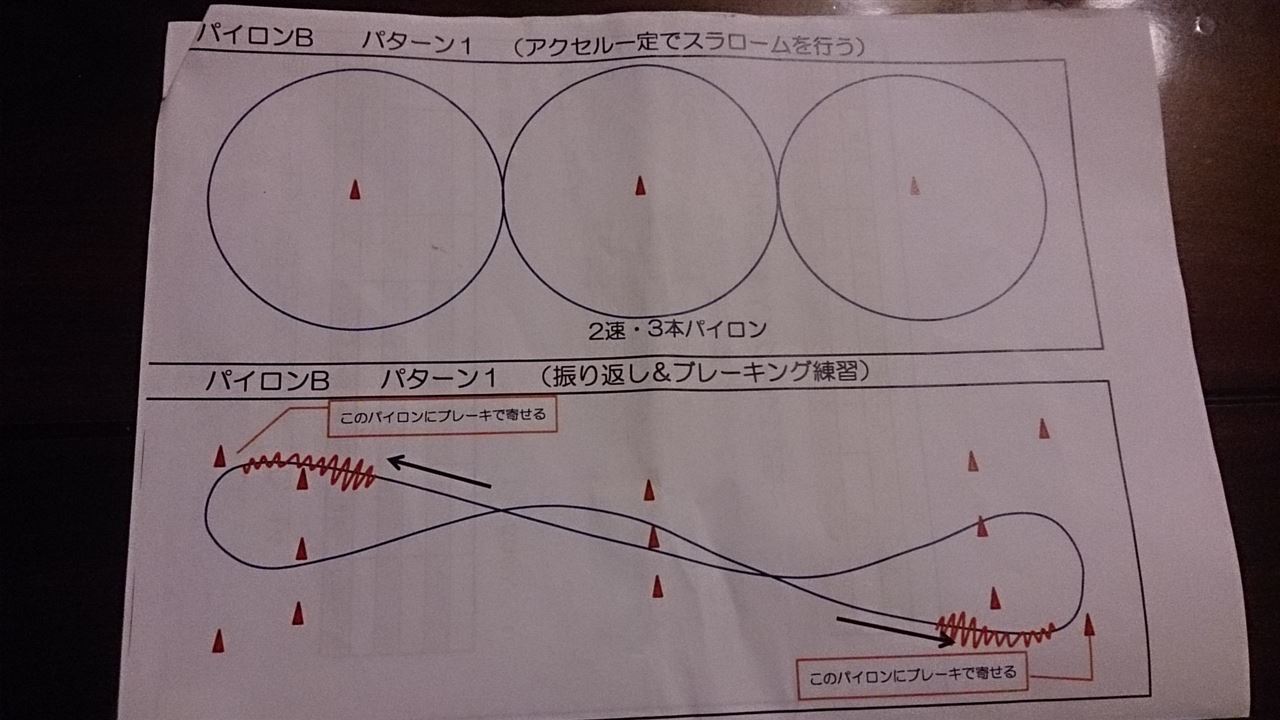 パイロンB　パターン1　（アクセル一定でスラロームを行う）
2速・3本パイロン
パイロンB　パターン1　（振り返し＆ブレーキング練習）
このパイロンにブレーキで寄せる
このパイロンにブレーキで寄せる